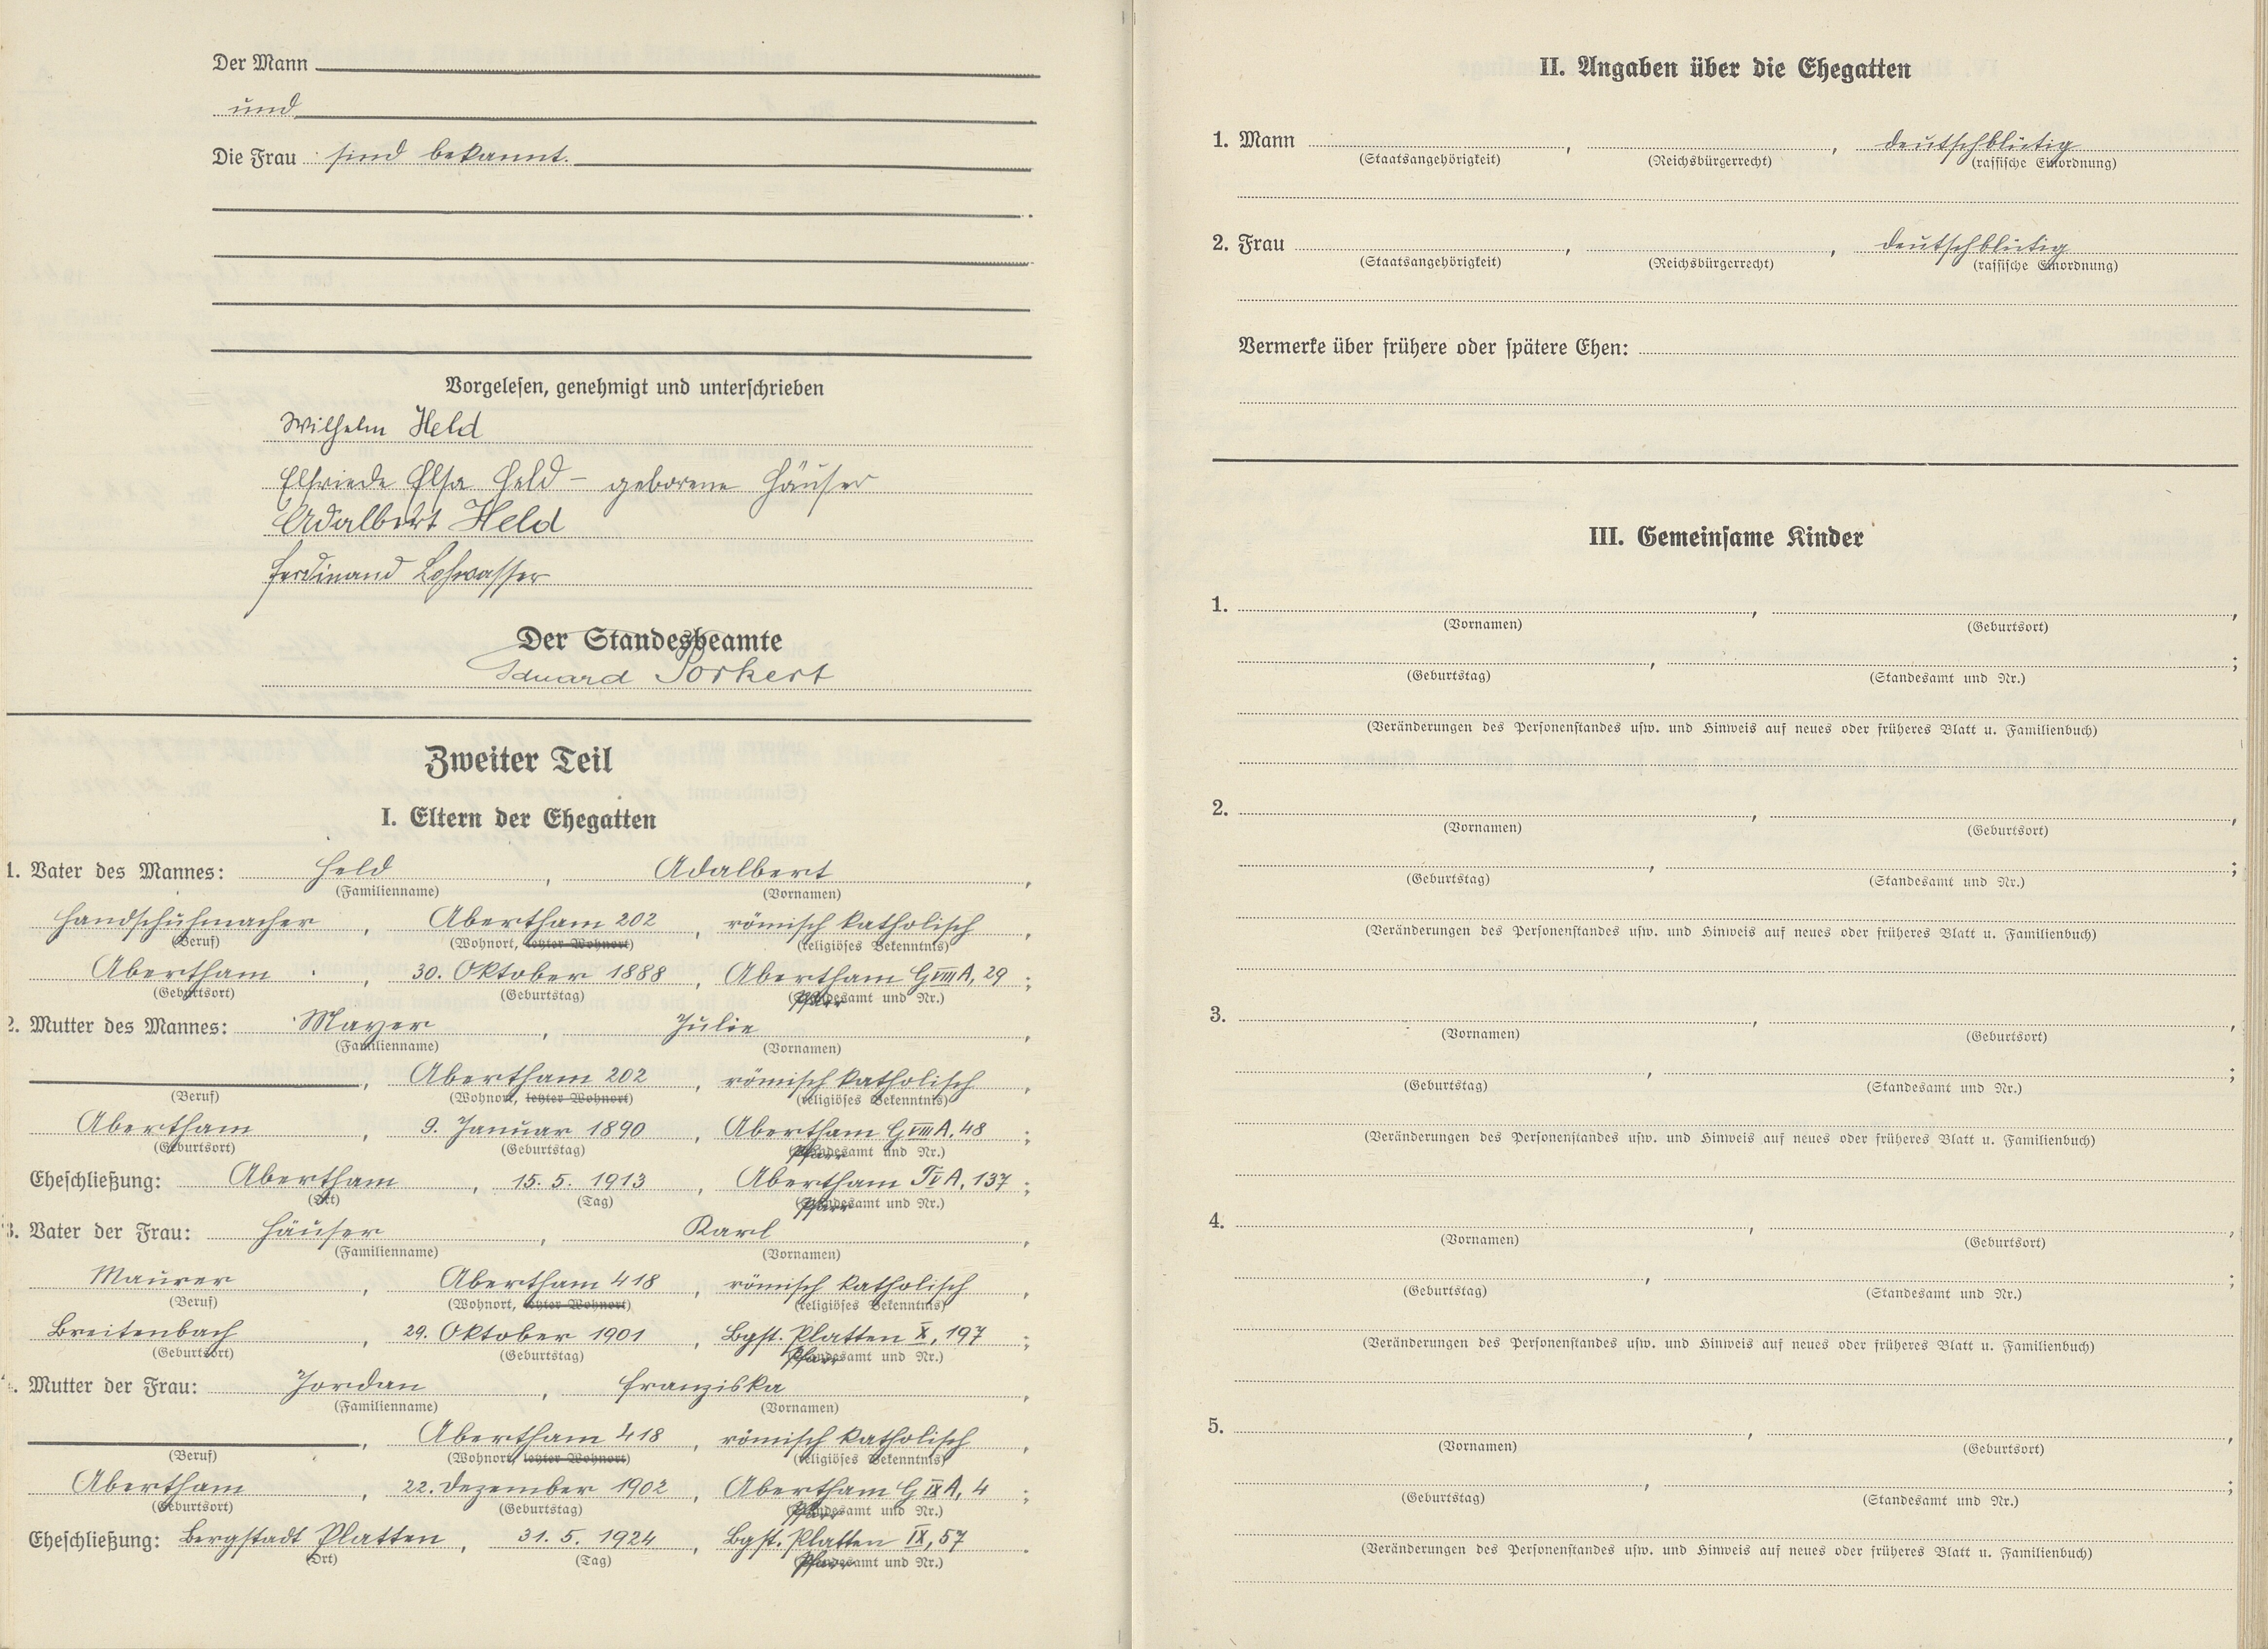 Der Mann
und
Die Frau sind bekannt.
Vorgelesen, genehmigt und unterschrieben
Wilhelm Held
Elfriede Elsa Held – geborene Häuser
Adalbert Held
Ferdinand Lohwasser
Der Standesbeamte
Eduard Porkert
Zweiter Teil
I. Eltern der Ehegatten
1. Vater des Mannes: Held, Adalbert,
(Familienname) (Vornamen)
Handschuhmacher, Abertham 202, römisch katholisch,
(Beruf) (Wohnort, letzter Wohnort) (religiöses Bekenntnis)
Abertham, 30. Oktober 1888, Abertham G VIII A, 29;
(Geburtsort) (Geburtstag) (Pfarramt und Nr.)
2. Mutter des Mannes: Mayer, Julie,
(Familienname) (Vornamen)
, Abertham 202, römisch katholisch,
(Beruf) (Wohnort, letzter Wohnort) (religiöses Bekenntnis)
Abertham, 9. Januar 1890, Abertham G VIII A, 48;
(Geburtsort) (Geburtstag) (Pfarramt und Nr.)
Eheschließung: Abertham, 15. 5. 1913, Abertham A, 137;
(Ort) (Tag) (Pfarramt und Nr.)
3. Vater der Frau: Häuser, Karl,
(Familienname) (Vornamen)
Maurer, Abertham 418, römisch katholisch,
(Beruf) (Wohnort, letzter Wohnort) (religiöses Bekenntnis)
Breitenbach, 29. Oktober 1901, Bgst. Platten X, 197;
(Geburtsort) (Geburtstag) (Pfarramt und Nr.)
. Mutter der Frau: Jordan, Franziska,
(Familienname) (Vornamen)
, Abertham 418, römisch katholisch,
(Beruf) (Wohnort, letzter Wohnort) (religiöses Bekenntnis)
Abertham, 22. Dezember 1902, Abertham G IX A, 4;
(Geburtsort) (Geburtstag) (Pfarramt und Nr.)
Eheschließung: Bergstadt Platten, 31. 5. 1924, Bgst. Platten IX, 57.
(Ort) (Tag) (Pfarramt und Nr.)
II. Angaben über die Ehegatten
1. Mann , , deutschblütig
(Staatsangehörigkeit) (Reichsbürgerrecht) (rassische Einordnung)
2. Frau , , deutschblütig
(Staatsangehörigkeit) (Reichsbürgerrecht) (rassische Einordnung)
Vermerke über frühere oder spätere Ehen:
III. Gemeinsame Kinder
1. , ,
(Vornamen) (Geburtsort)
, ;
(Geburtstag) (Standesamt und Nr.)
(Veränderungen des Personenstandes usw. und Hinweis auf neues oder früheres Blatt u. Familienbuch)
2. , ,
(Vornamen) (Geburtsort)
, ;
(Geburtstag) (Standesamt und Nr.)
(Veränderungen des Personenstandes usw. und Hinweis auf neues oder früheres Blatt u. Familienbuch)
3. , ,
(Vornamen) (Geburtsort)
, ;
(Geburtstag) (Standesamt und Nr.)
(Veränderungen des Personenstandes usw. und Hinweis auf neues oder früheres Blatt u. Familienbuch)
4. , ,
(Vornamen) (Geburtsort)
, ;
(Geburtstag) (Standesamt und Nr.)
(Veränderungen des Personenstandes usw. und Hinweis auf neues oder früheres Blatt u. Familienbuch)
5. , ,
(Vornamen) (Geburtsort)
, ;
(Geburtstag) (Standesamt und Nr.)
(Veränderungen des Personenstandes usw. und Hinweis auf neues oder früheres Blatt u. Familienbuch)